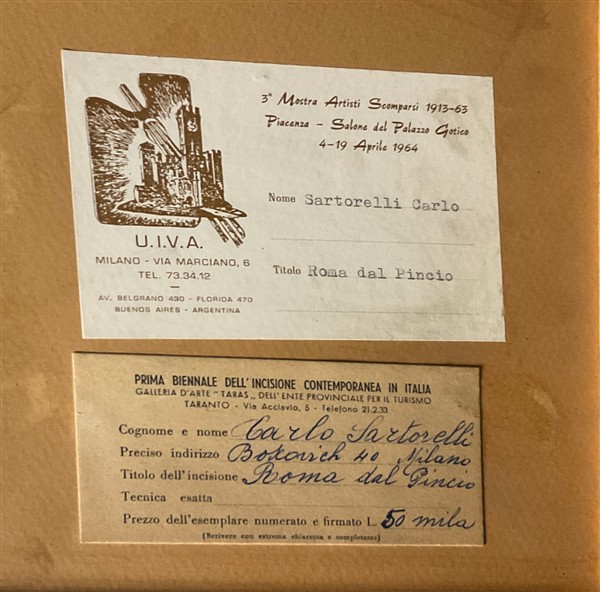 3ª Mostra Artisti Scomparsi 1913-63
Piacenza - Salone del Palazzo Gotico
4-19 Aprile 1964
Nome Sartorelli Carlo
Titolo Roma dal Pincio
U.I.V.A.
MILANO - VIA MARCIANO, 6
TEL. 73.34.12
AV. BELGRANO 430 - FLORIDA 470
BUENOS AIRES - ARGENTINA
PRIMA BIENNALE DELL'INCISIONE CONTEMPORANEA IN ITALIA
GALLERIA D'ARTE "TARAS„ DELL'ENTE PROVINCIALE PER IL TURISMO
TARANTO - Via Acclavio, 5 - Telefono 21.2.33
Cognome e nome Carlo Sartorelli
Preciso indirizzo 40 Milano
Titolo dell'incisione Roma dal Pincio
Tecnica esatta
Prezzo dell'esemplare numerato e firmato L. 50 mila
(Scrivere con estrema chiarezza e completezza)